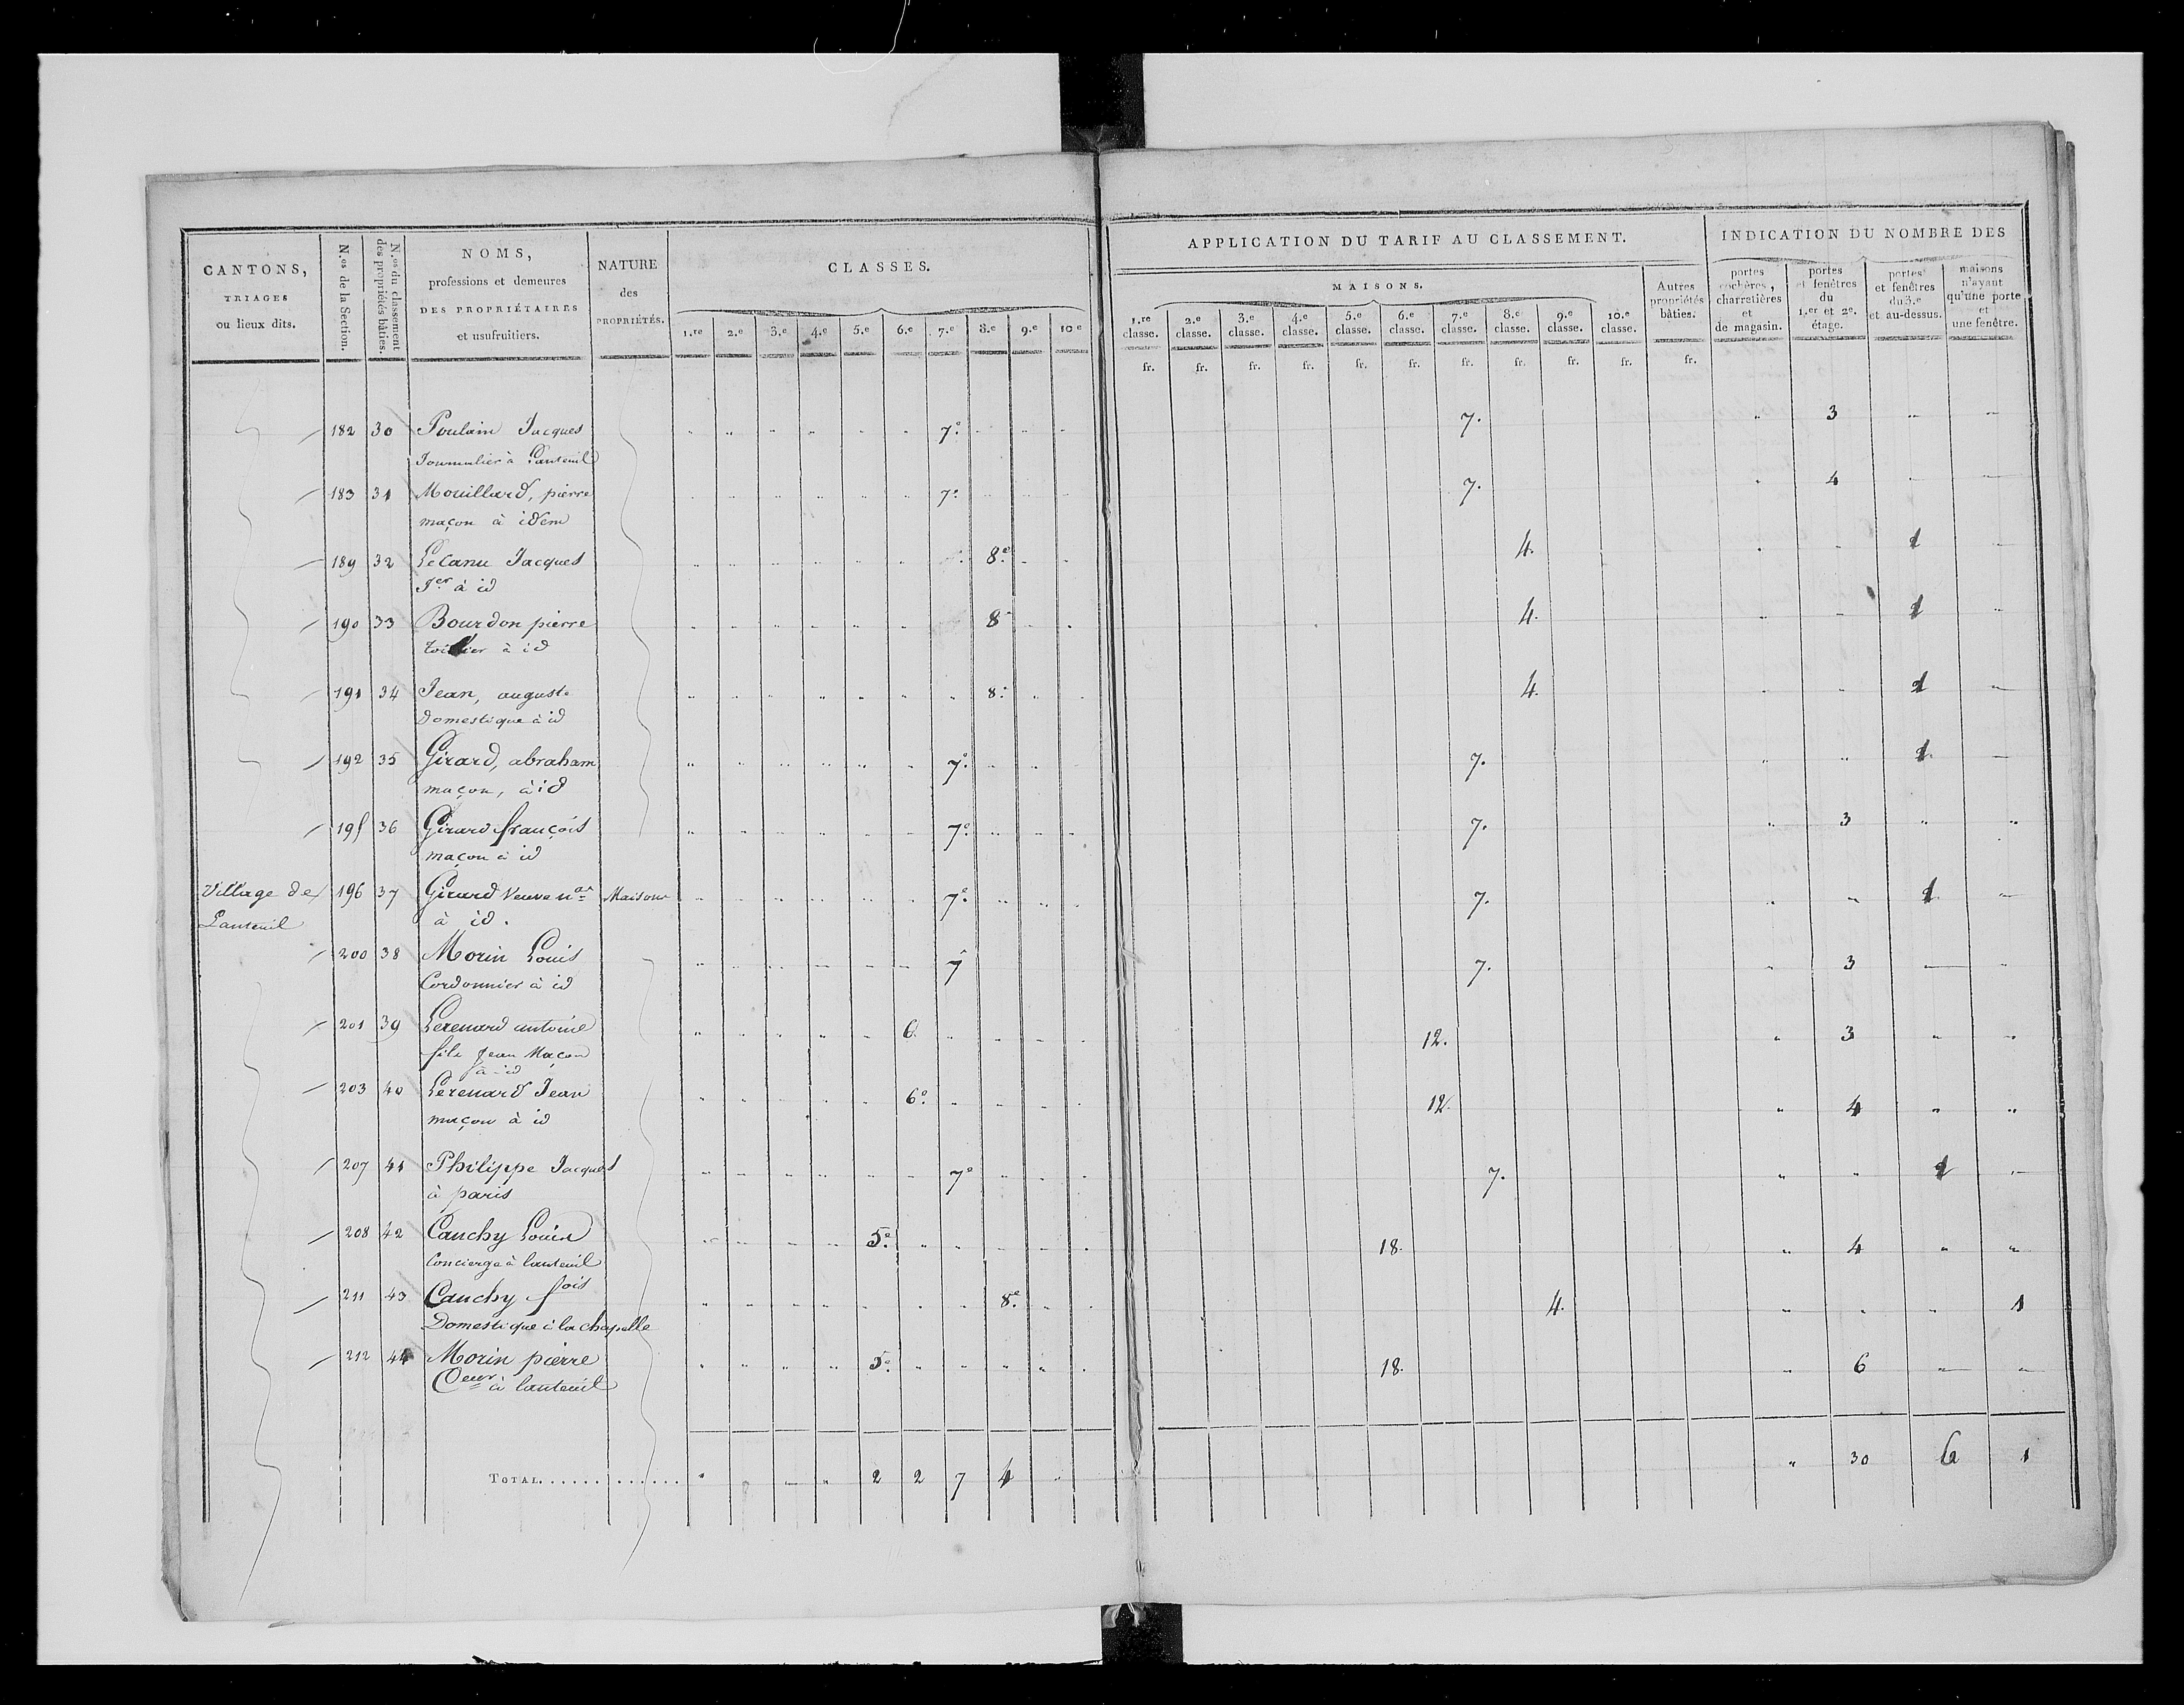 CANTONS,
TRIAGES
ou lieux dits.
N.os de la Section.
N.os du classement
des propriétés bâties.
NOMS,
professions et demeures
DES PROPRIÉTAIRES
et usufruitiers.
NATURE
des
PROPRIÉTÉS.
CLASSES.
1.re 2.e 3.e 4.e 5.e 6.e 7.e 8.e 9.e 10.e
APPLICATION DU TARIF AU CLASSEMENT.
MAISONS.
1.re classe. 2.e classe. 3.e classe. 4.e classe. 5.e classe. 6.e classe. 7.e classe. 8.e classe. 9.e classe. 10.e classe.
Autres
propriétés
bâties.
fr. fr. fr. fr. fr. fr. fr. fr. fr. fr. fr.
INDICATION DU NOMBRE DES
portes
cochères,
charretières
et
de magasin.
portes
et fenêtres
du
1.er et 2e.
étage.
portes
et fenêtres
du 3.e
et au-dessus.
maisons
n'ayant
qu'une porte
et
une fenêtre.
182 30 Poulain Jacques 7e. 7. 3
Journalier à Lanteuil
183 31 Mouillard, pierre 7e. 7. 4
maçon à idem
189 32 LeCanu Jacques 8e. 4. 1
Jer à id
190 33 Bourdon pierre 8e 4. 1
à id
191 34 Jean, auguste 8e. 4. 1
Domestique à id
192 35 Girard, abraham 7e. 7. 1
maçon, à id
195 36 Girard françois 7e. 7. 3
maçon à id
Village de 196 37 Girard Veuve nas Maison 7e. 7. 1
Lanteuil à id.
200 38 Morin Louis 7e 7. 3
Cordonnier à id
201 39 Lerenard antoine 6. 12. 3
fils Jean Maçon
à id
203 40 Lerenard Jean 6e. 12. 4
maçon à id
207 41 Philippe Jacques 7e 7. 1
à paris
208 42 Cauchy Louis 5e. 18. 4
Concierge à lanteuil
211 43 Cauchy fois 8e. 4. 1
Domestique à la chapelle
212 44 Morin pierre 5e. 18. 6
Ceur à lanteuil
TOTAL............. 2 2 7 4 30 6 1